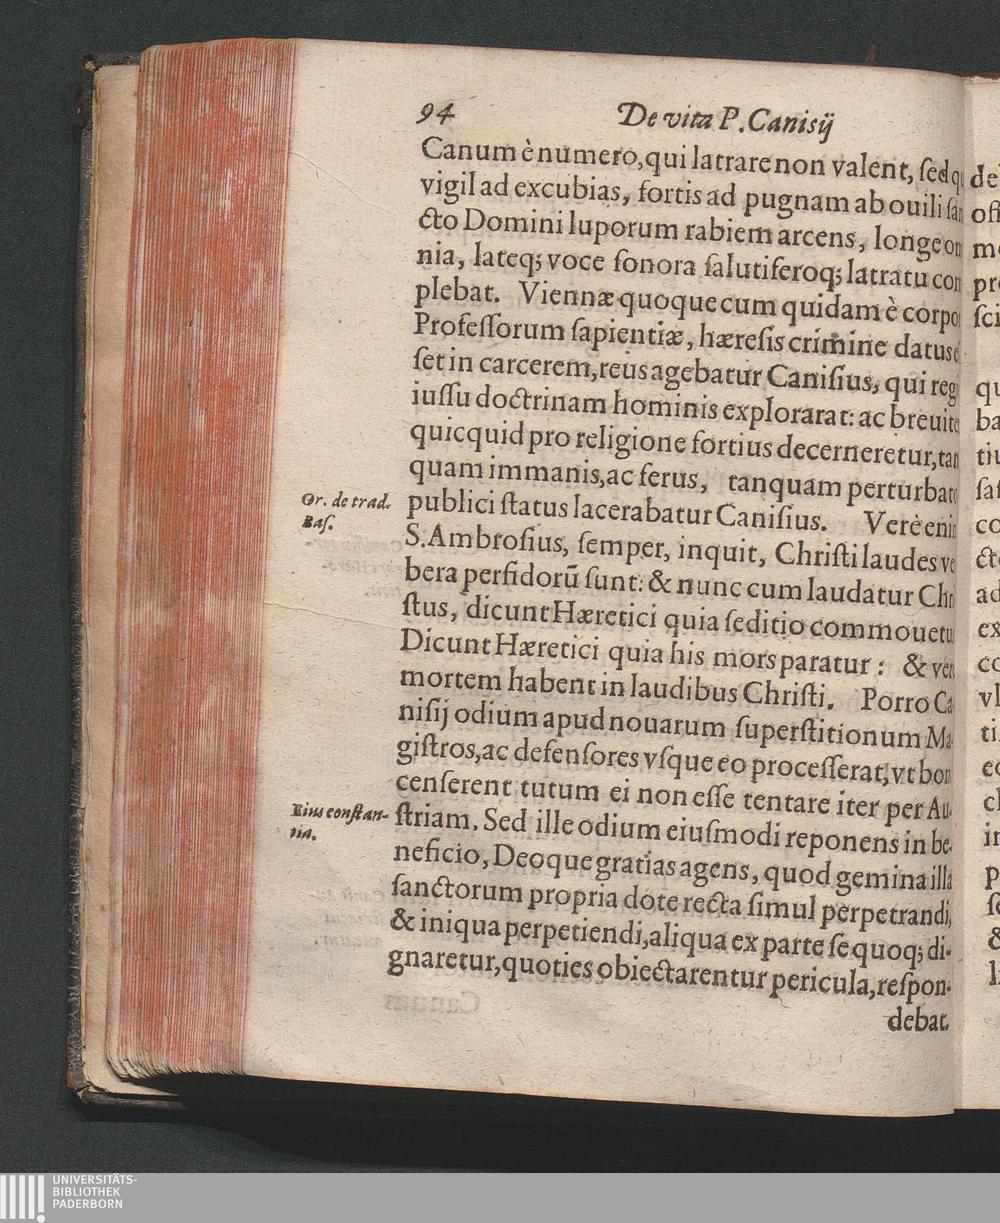 94 De vita P. Canisij
Canum è numero, qui latrare non valent, sed q
vigil ad excubias, fortis ad pugnam ab ouili san
cto Domini luporum rabiem arcens, longe om
nia, lateq; voce sonora salutiferoq; latratu com
plebat. Viennæ quoque cum quidam è corpo
Professorum sapientiæ, hæresis crimine datus e
set in carcerem, reus agebatur Canisius, qui reg
iussu doctrinam hominis explorarat: ac breuite
quicquid pro religione fortius decerneretur, tan
quam immanis, ac ferus, tanquam perturbato
Or. de trad.
Bas.
publici status lacerabatur Canisius. Verè enim
S. Ambrosius, semper, inquit, Christi laudes ve
bera perfidorũ sunt: & nunc cum laudatur Chri
stus, dicunt Hæretici quia seditio commouetu
Dicunt Hæretici quia his mors paratur: & ver
mortem habent in laudibus Christi. Porro Ca
nisij odium apud nouarum superstitionum Ma
gistros, ac defensores vsque eo processerat, vt bon
censerent tutum ei non esse tentare iter per Au-
Eius constan-
tia.
striam. Sed ille odium eiusmodi reponens in be-
neficio, Deoque gratias agens, quod gemina illa
sanctorum propria dote recta simul perpetrandi,
& iniqua perpetiendi, aliqua ex parte se quoq; di-
gnaretur, quoties obiectarentur pericula, respon-
debat.
de
mo
pr
sci
qu
ba
tiu
co
cto
ad
ex
co
vl
ti
eo
cl
in
p
se
&
li
UNIVERSITÄTS-
BIBLIOTHEK
PADERBORN